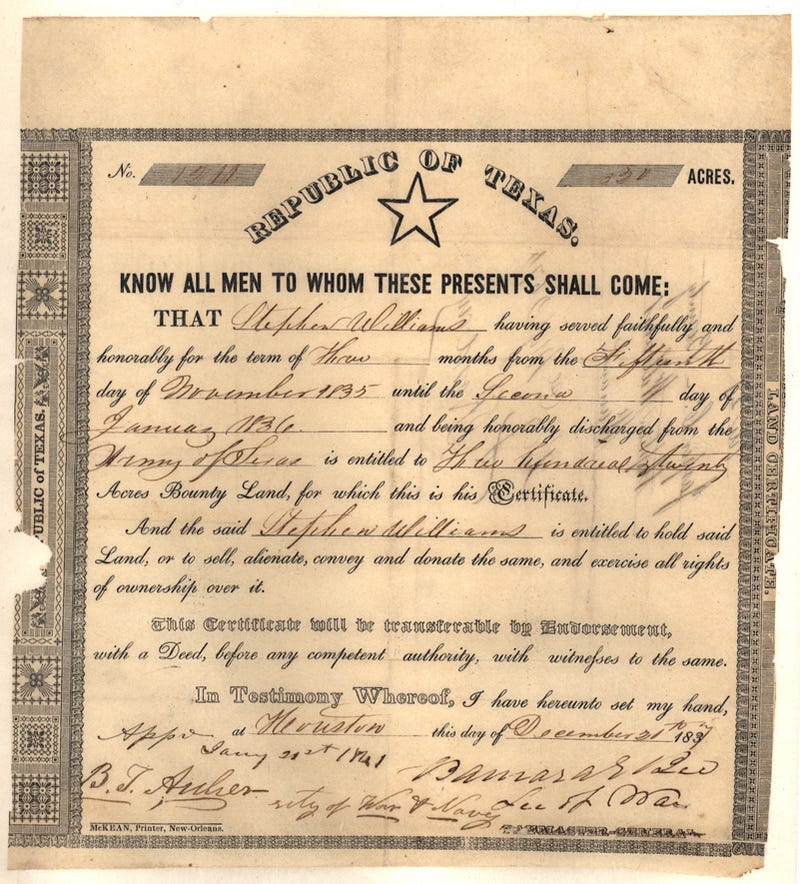 No. 1511 320 ACRES.
REPUBLIC OF TEXAS.
KNOW ALL MEN TO WHOM THESE PRESENTS SHALL COME:
THAT Stephen Williams having served faithfully and
honorably for the term of Three months from the Fifteenth
day of November 1835 until the Second day of
January 1836 and being honorably discharged from the
Army of Texas is entitled to Three hundred & twenty
Acres Bounty Land, for which this is his Certificate.
And the said Stephen Williams is entitled to hold said
Land, or to sell, alienate, convey and donate the same, and exercise all rights
of ownership over it.
This Certificate will be transferable by Endorsement,
with a Deed, before any competent authority, with witnesses to the same.
In Testimony Whereof, I have hereunto set my hand,
at Houston this day of December 21st 1837
Appd
Jany 21st 1841
B. T. Archer
Barnard E Bee
Sec of War
rity of War & Navy
McKEAN, Printer, New-Orleans.
PUBLIC of TEXAS.
LAND CERTIFICATE.